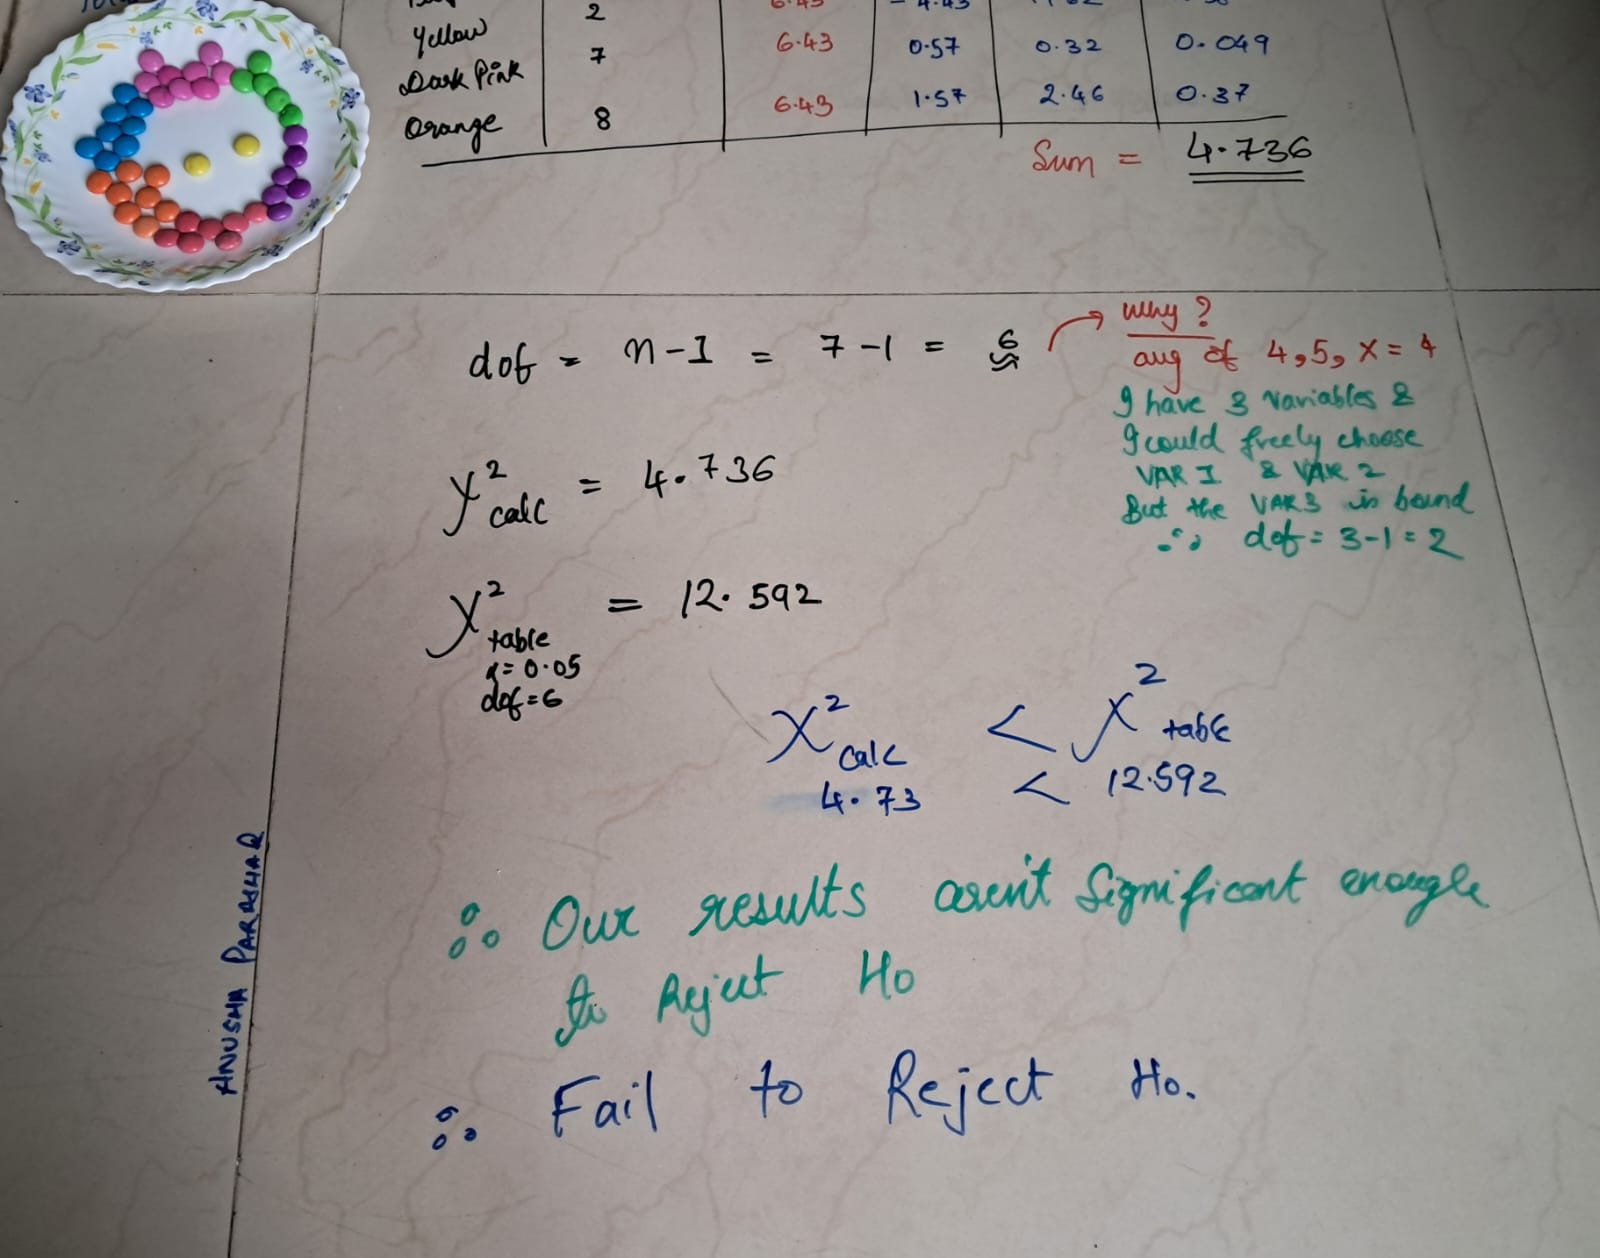 2
Yellow 7 6.43 0.57 0.32 0.049
Dark Pink
Orange 8 6.43 1.57 2.46 0.37
Sum = 4.736
dof = n-1 = 7-1 = 6
Why?
avg of 4,5, x = 4
I have 3 variables &
I could freely choose
VAR 1 & VAR 2
But the VAR3 is bound
∴ dof = 3-1 = 2
χ² calc = 4.736
χ² table = 12.592
α=0.05
dof=6
χ² calc < χ² table
4.73 < 12.592
∴ Our results aren't significant enough
to Reject Ho
∴ Fail to Reject Ho.
ANUSHA PARASHAR